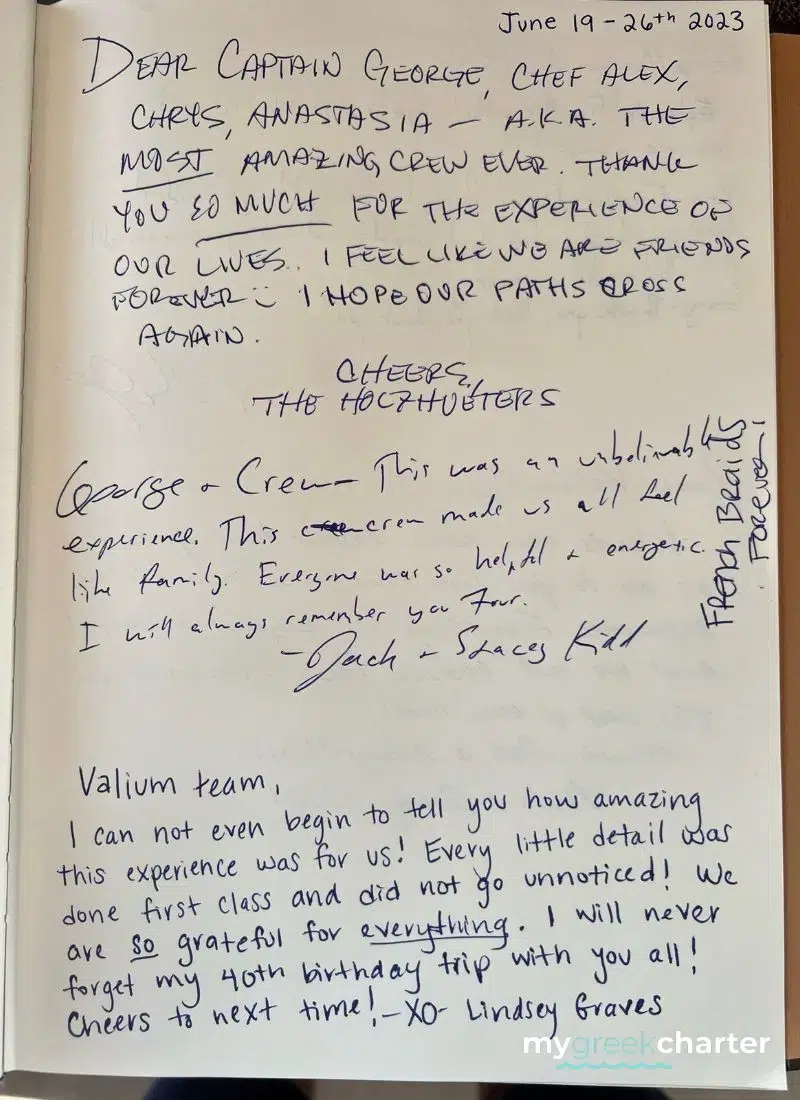 June 19 - 26th 2023
DEAR CAPTAIN GEORGE, CHEF ALEX,
CHRYS, ANASTASIA — A.K.A. THE
MOST AMAZING CREW EVER. THANK
YOU SO MUCH FOR THE EXPERIENCE OF
OUR LIVES. I FEEL LIKE WE ARE FRIENDS
FOREVER :) I HOPE OUR PATHS CROSS
AGAIN.
CHEERS,
THE HOLZHUETERS
George + Crew - This was an unbelievable
experience. This crew made us all feel
like family. Everyone was so helpful + energetic.
I will always remember you four.
- Jack + Stacey Kidd
French Braids
Forever!
Valium team,
I can not even begin to tell you how amazing
this experience was for us! Every little detail was
done first class and did not go unnoticed! We
are so grateful for everything. I will never
forget my 40th birthday trip with you all!
Cheers to next time! - XO - Lindsey Graves
mygreekcharter